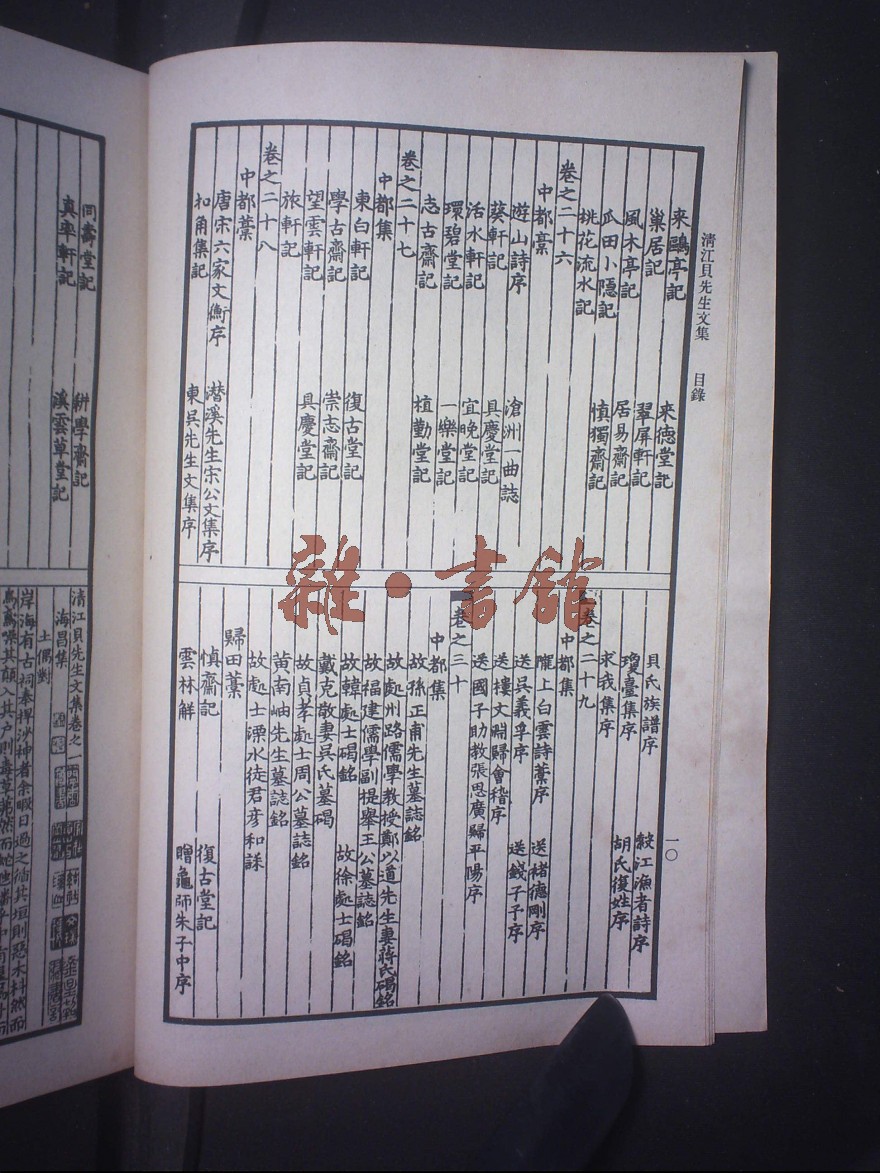 清江貝先生文集　目錄
一〇
來鷗亭記　來德堂記
巢居記　翠屏軒記
風木亭記　居易齋記
瓜田小隱記　慎獨齋記
桃花流水記
卷之二十六
中都稾
遊山詩序　滄洲一曲誌
葵軒記　具慶堂記
活水軒記　宜晚堂記
環碧堂記　一樂堂記
志古齋記　植勤堂記
卷之二十七
中都集
東白軒記　復古堂記
學古齋記　崇志齋記
望雲軒記　具慶堂記
旅軒記
卷之二十八
中都藁
唐宋六家文衡序　潛溪先生宋公文集序
扣角集記　東吳先生文集序
貝氏族譜序　漁者詩序
瓊臺集序　胡氏復姓序
求我集序
卷之二十九
中都集
隴上白雲詩藁序　送褚德剛序
送吳義孚序　送錢子予序
送樓文淵歸會稽序
送國子助教張思廣歸平陽序
卷之三十
中都集
故孫正甫先生墓誌銘
故處州路儒學教授鄭以道先生妻蔣氏碣銘
故福建儒學副提舉王公墓誌銘
故韓處士碣銘　故徐處士碣銘
戴克敬妻吳氏墓碣
故貞孝處士周公墓誌銘
黃南岫先生墓誌銘
故處士溧水徒君彥和誄
歸田藁
慎齋記　復古堂記
雲林解　贈龜師朱子中序
同壽堂記　耕學齋記
真率軒記　溪雲草堂記
清江貝先生文集卷之一
海昌集
土偶對
岸海有古祠奉捍沙神者余暇日過之
雜·書館